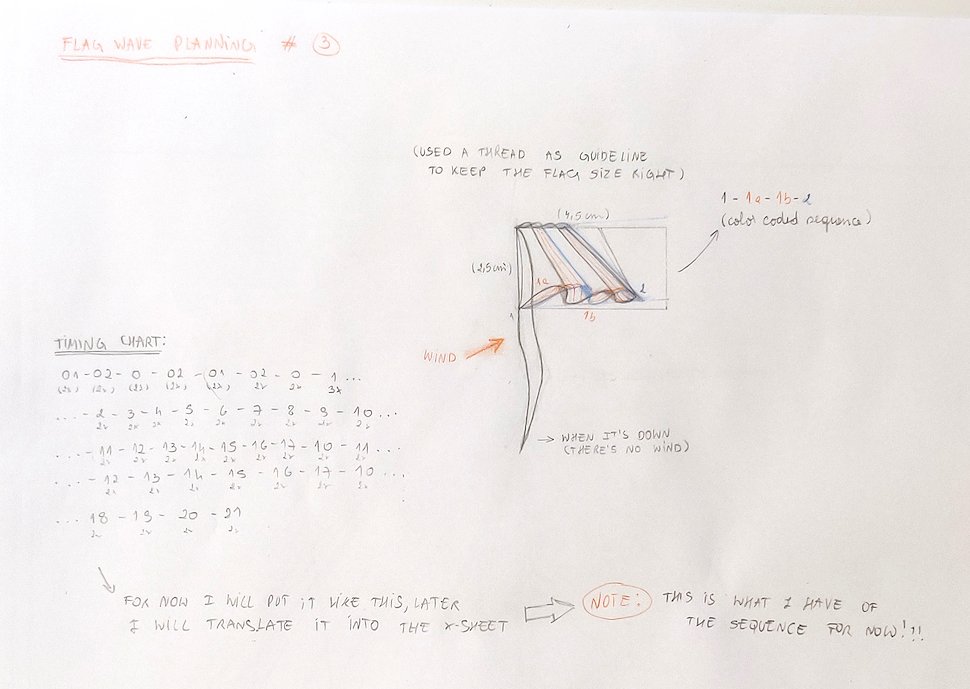 FLAG WAVE PLANNING # 3
(USED A THREAD AS GUIDELINE
TO KEEP THE FLAG SIZE RIGHT)
1 - 1a - 1b - 2
(color coded sequence)
(4,5cm)
(2,5cm)
1a
2
1
1b
WIND
WHEN IT'S DOWN
(THERE'S NO WIND)
TIMING CHART:
01 - 02 - 0 - 02 - 01 - 02 - 0 - 1 ...
(2x) (2x) (2x) (2x) (2x) 2x 2x 3x
... - 2 - 3 - 4 - 5 - 6 - 7 - 8 - 9 - 10 ...
2x 2x 2x 2x 2x 2x 2x 2x 2x
... - 11 - 12 - 13 - 14 - 15 - 16 - 17 - 10 - 11 ...
2x 2x 2x 2x 2x 2x 2x 2x 2x
... - 12 - 13 - 14 - 15 - 16 - 17 - 10 ...
2x 2x 2x 2x 2x 2x 2x
... 18 - 19 - 20 - 21
2x 2x 2x 2x
FOR NOW I WILL PUT IT LIKE THIS, LATER
I WILL TRANSLATE IT INTO THE X-SHEET
NOTE: THIS IS WHAT I HAVE OF
THE SEQUENCE FOR NOW!!!